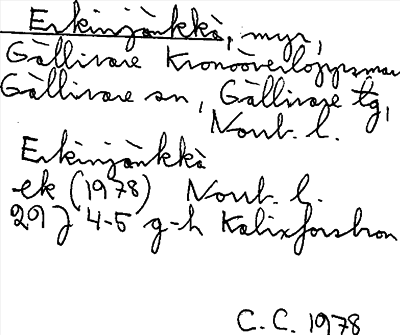 Erkinjänkkä, myr,
Gällivare Kronoöverloppsmar
Gällivare sn, Gällivare tg,
Norrb. l.
Erkinjänkkä
ek (1978) Norrb. l.
29J 4-5 g-h Kalixforsbron
C.C. 1978